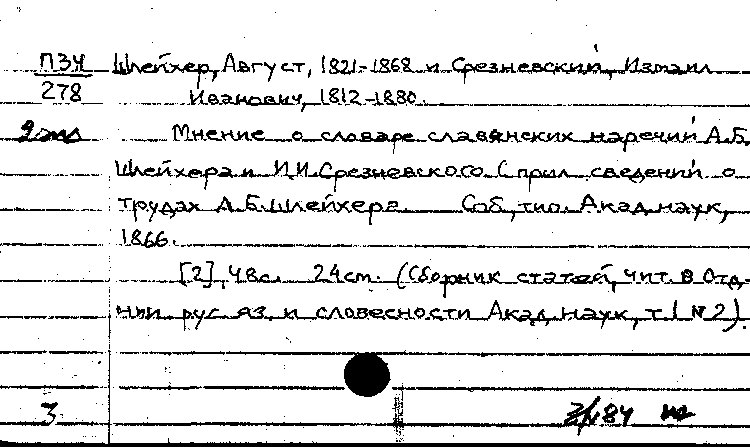 ПЗЧ Шлейхер, Август, 1821-1868 и Срезневский, Измаил
278 Иванович, 1812-1880.
2 экз Мнение о словаре славянских наречий А.Б.
Шлейхера и И.И.Срезневского. С прил. сведений о
трудах А.Б.Шлейхера. Спб, тип. Акад. наук,
1866.
[2], 48с. 24см. (Сборник статей, чит. в Отд-
нии рус. яз. и словесности Акад. наук, т.1 №2).
3 84